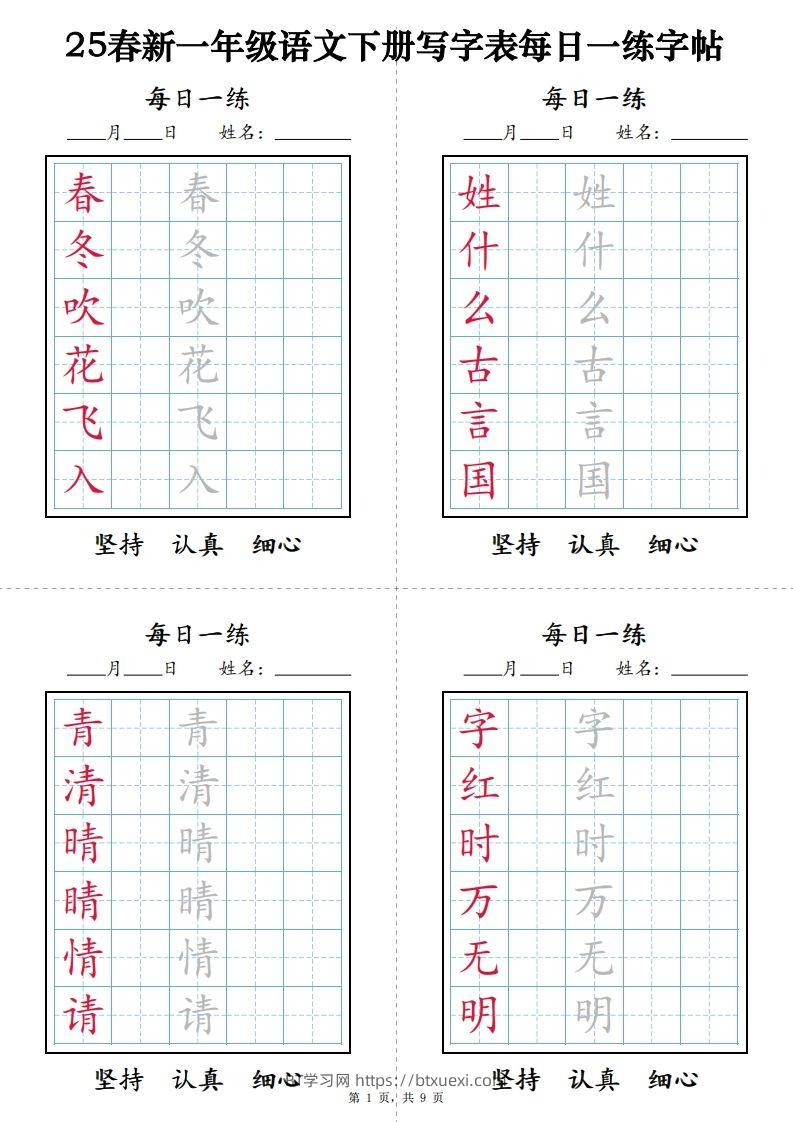 25春新一年级语文下册写字表每日一练字帖
每日一练
____月____日 姓名：________
春 春
冬 冬
吹 吹
花 花
飞 飞
入 入
坚持 认真 细心
每日一练
____月____日 姓名：________
姓 姓
什 什
么 么
古 古
言 言
国 国
坚持 认真 细心
每日一练
____月____日 姓名：________
青 青
清 清
晴 晴
睛 睛
情 情
请 请
坚持 认真 细心
每日一练
____月____日 姓名：________
字 字
红 红
时 时
万 万
无 无
明 明
坚持 认真 细心
学习网 https://btxuexi.com
第 1 页，共 9 页